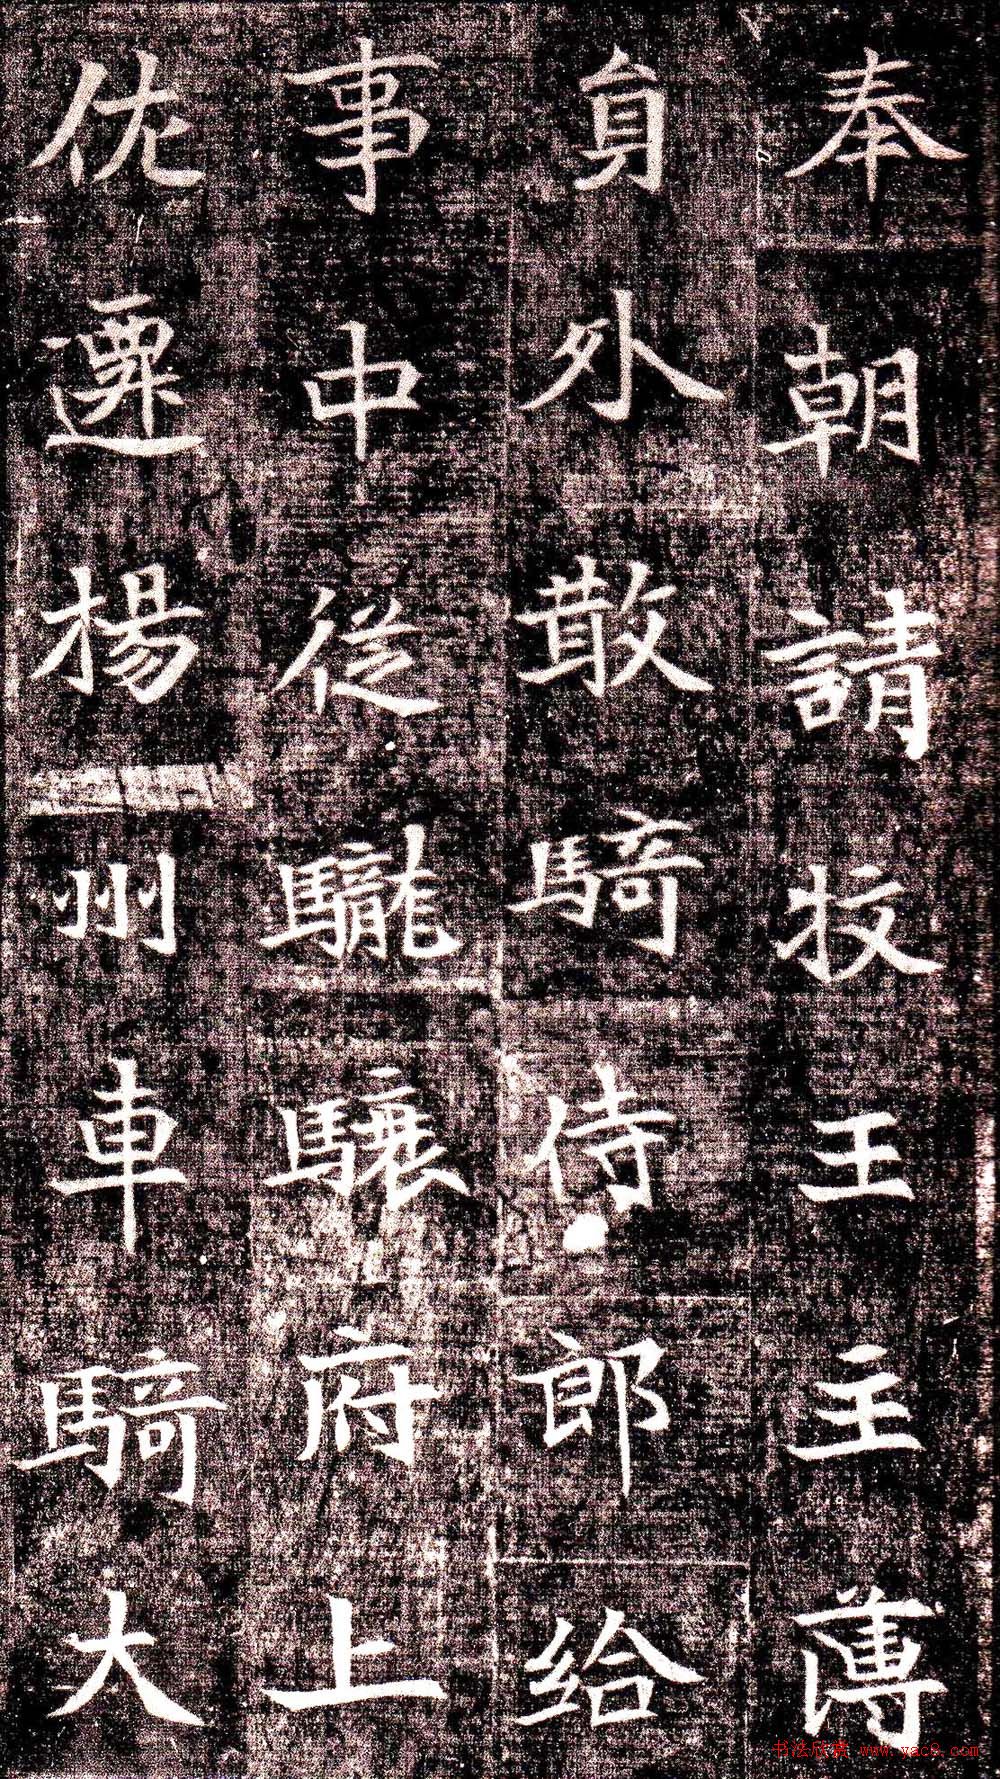 奉朝請挍王主薄
員外散騎侍郎給
事中從驪驤府上
佐遷楊州車騎大
书法欣赏 www.yac8.com